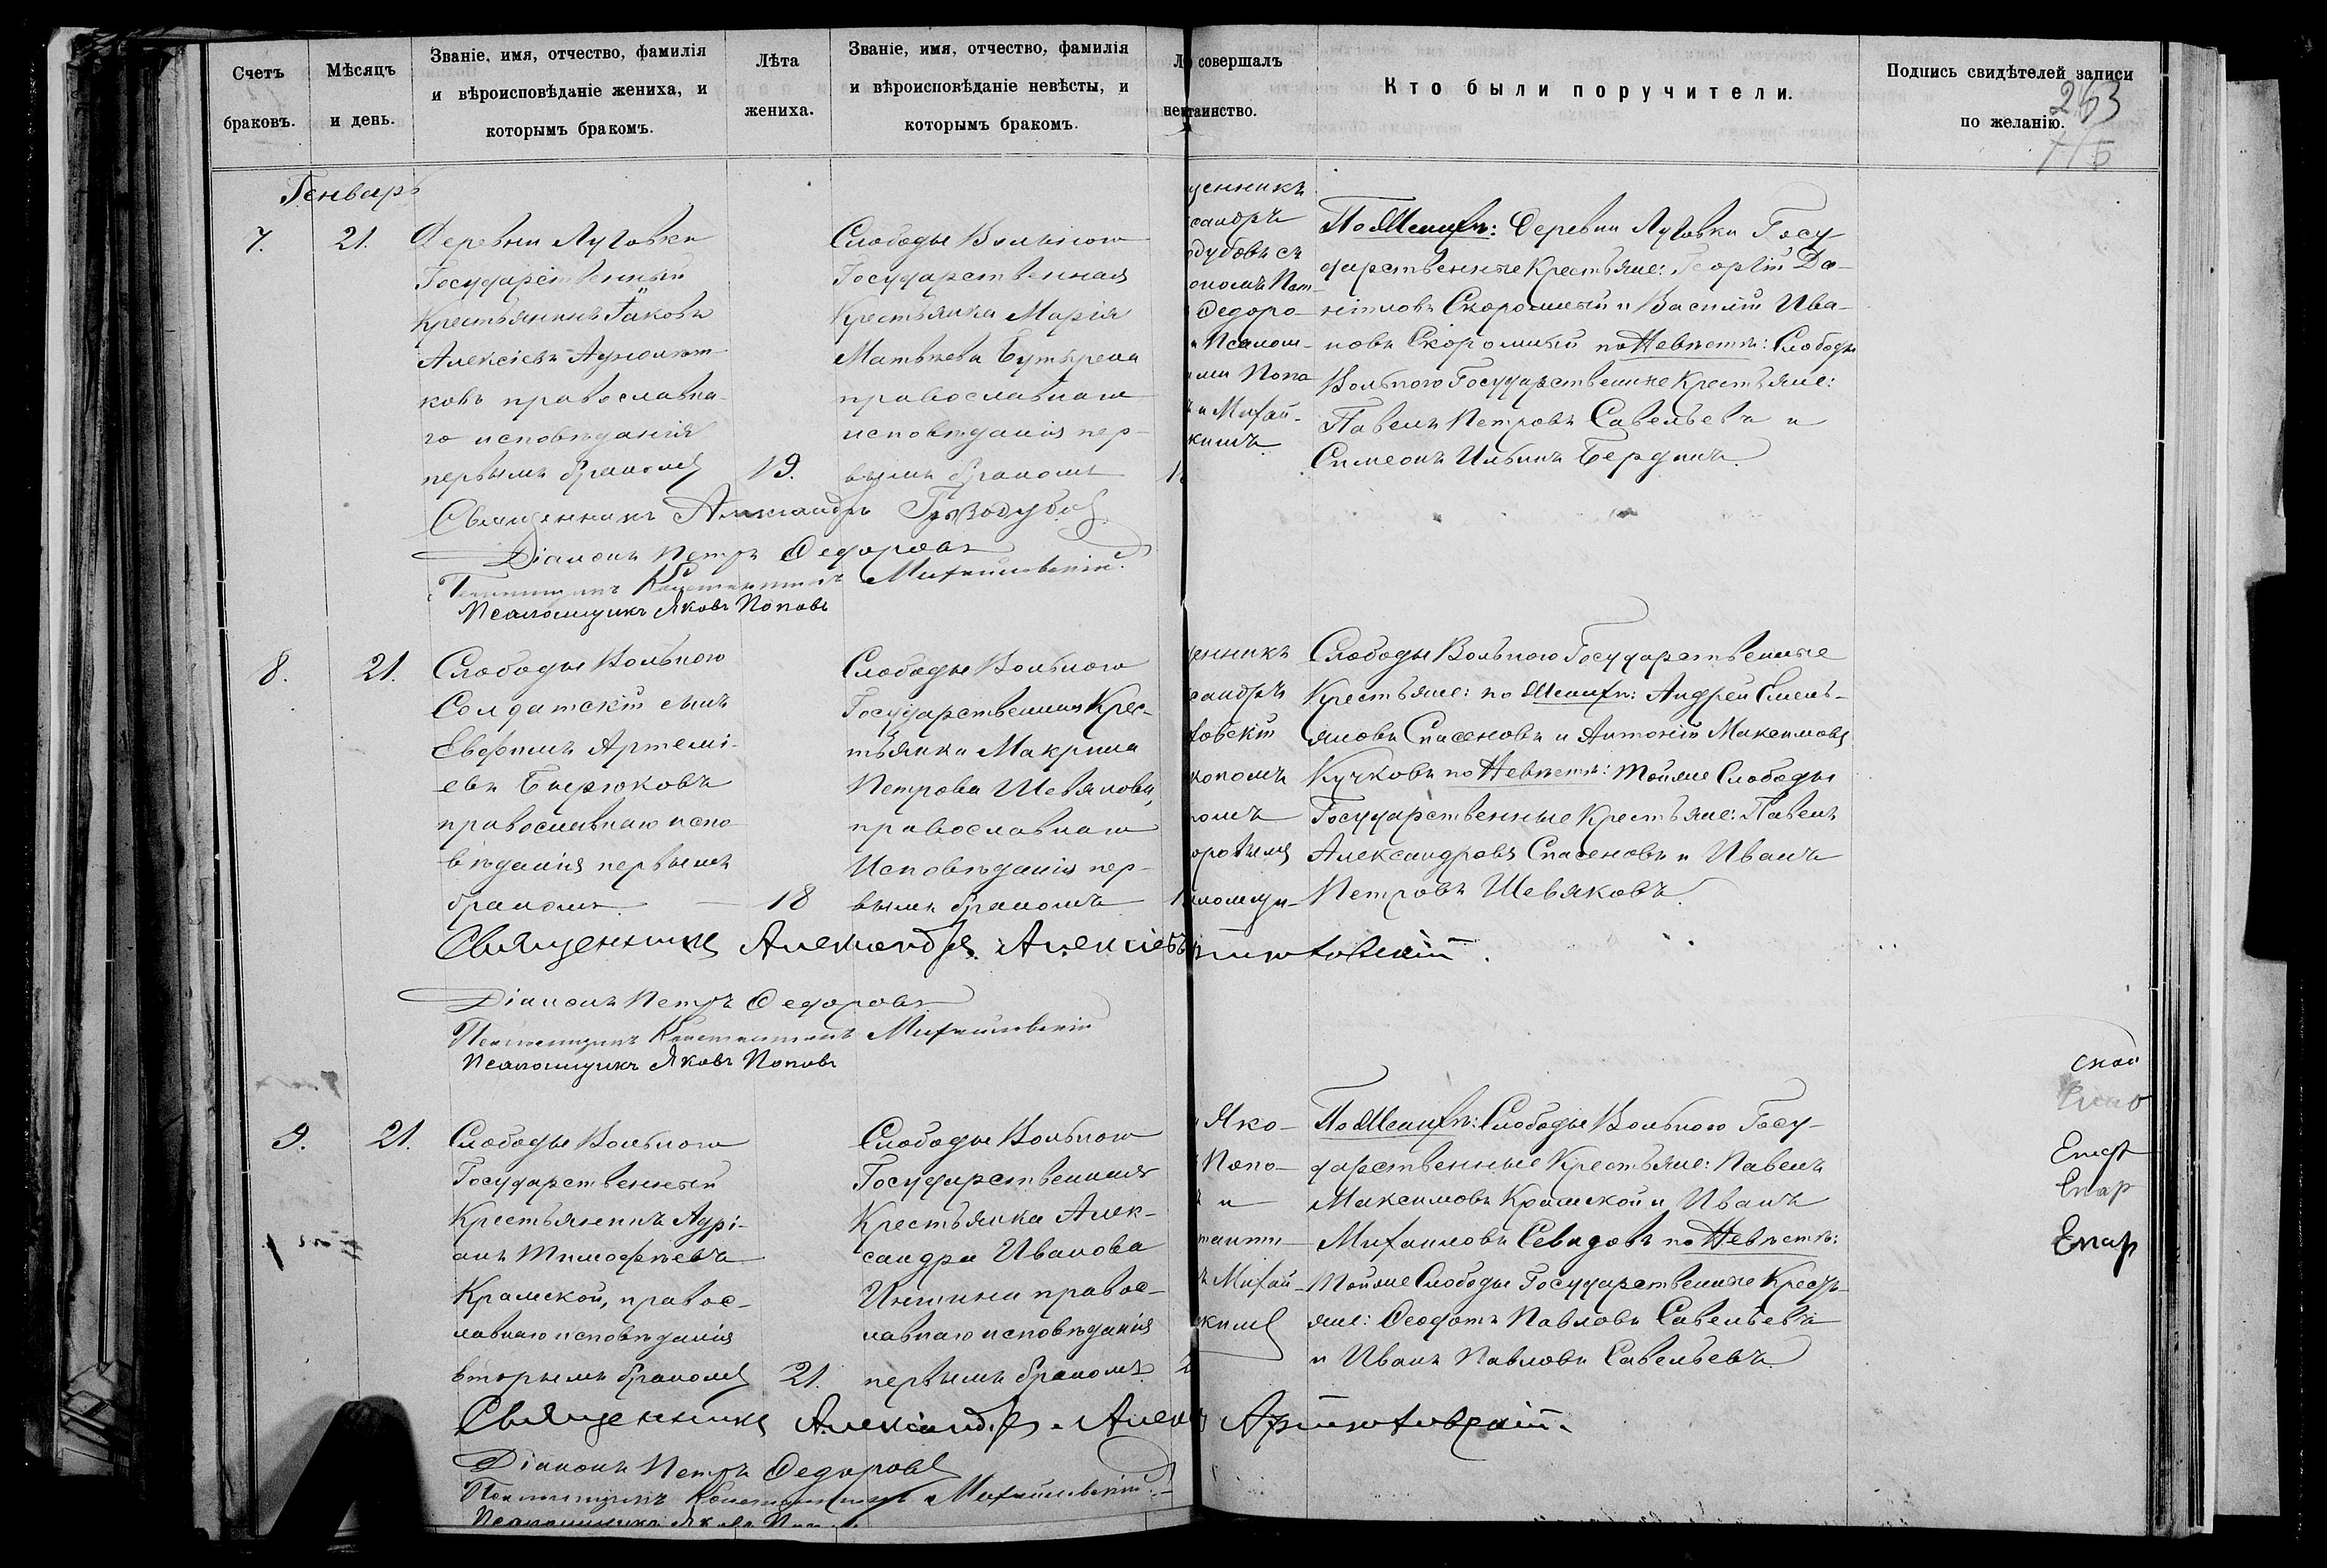 Счетъ
браковъ.
Мѣсяцъ
и день.
Званіе, имя, отчество, фамилія
и вѣроисповѣданіе жениха, и
которымъ бракомъ.
Лѣта
жениха.
Званіе, имя, отчество, фамилія
и вѣроисповѣданіе невѣсты, и
которымъ бракомъ.
совершалъ
таинство.
Кто были поручители.
Подпись свидѣтелей записи
по желанію.
263
Генварь
7.
21.
Деревни Луговки
Государственный
Крестьянинъ Іаковъ
Алексіевъ
ковъ православна-
го исповѣданія
первымъ бракомъ
19.
Слободы Вольного
Государственная
Крестьянка Марія
Матвѣева Бутырева
православнаго
исповѣданія пер-
вымъ бракомъ
щенникъ
сандръ
одубовъ съ
ономъ Пет-
Федоро-
и Псалом-
ами Попо-
ъ и Михай-
кимъ
По Женихѣ: Деревни Луговки Госу-
дарственные Крестьяне: Георгій Да-
ніиловъ Скоромный и Василій Ива-
новъ Скоромный по Невѣстѣ: Слободы
Вольного Государственные Крестьяне:
Павелъ Петровъ Савельевъ и
Симеонъ Ильинъ Бердинъ.
Священникъ Александръ Гризодубовъ
Діаконъ Петръ Федоровъ
Псаломщикъ Константинъ Михайловскій.
Псаломщикъ Яковъ Поповъ
8.
21.
Слободы Вольного
Солдатскій сынъ
Евфимъ Артемі-
евъ Бирюковъ
православнаго испо-
вѣданія первымъ
бракомъ
18
Слободы Вольного
Государственная Крес-
тьянка Макрина
Петрова Шевякова,
православнаго
Исповѣданія пер-
вымъ бракомъ
щенникъ
сандръ
ховскій
кономъ
ромъ
оровымъ
аломщи-
Слободы Вольного Государственные
Крестьяне: по Женихѣ: Андрей Емель-
яновъ Спасеновъ и Антоній Максимовъ
Кучковъ по Невѣстѣ: Тойже Слободы
Государственные Крестьяне: Павелъ
Александровъ Спасеновъ и Иванъ
Петровъ Шевяковъ.
Священникъ Александръ Алексіевъ
Діаконъ Петръ Федоровъ
Псаломщикъ Константинъ Михайловскій
Псаломщикъ Яковъ Поповъ
9.
21.
Слободы Вольного
Государственный
Крестьянинъ Адрі-
анъ Тимофѣевъ
Крамской, правос-
лавнаго исповѣданія
вторымъ бракомъ
21.
Слободы Вольного
Государственная
Крестьянка Алек-
сандра Иванова
правос-
лавнаго исповѣданія
первымъ бракомъ
Яко-
Попо-
ъ и
танти-
ъ Михай-
скимъ
По Женихѣ: Слободы Вольного Госу-
дарственные Крестьяне: Павелъ
Максимовъ Крамской и Иванъ
Михаиловъ Севидовъ по Невѣстѣ:
Тойже Слободы Государственные Кресть-
яне: Феодотъ Павловъ Савельевъ
и Иванъ Павловъ Савельевъ.
Священникъ Александръ
Діаконъ Петръ Федоровъ
Псаломщикъ Константинъ Михайловскій
Псаломщикъ Яковъ
Епар
Епар